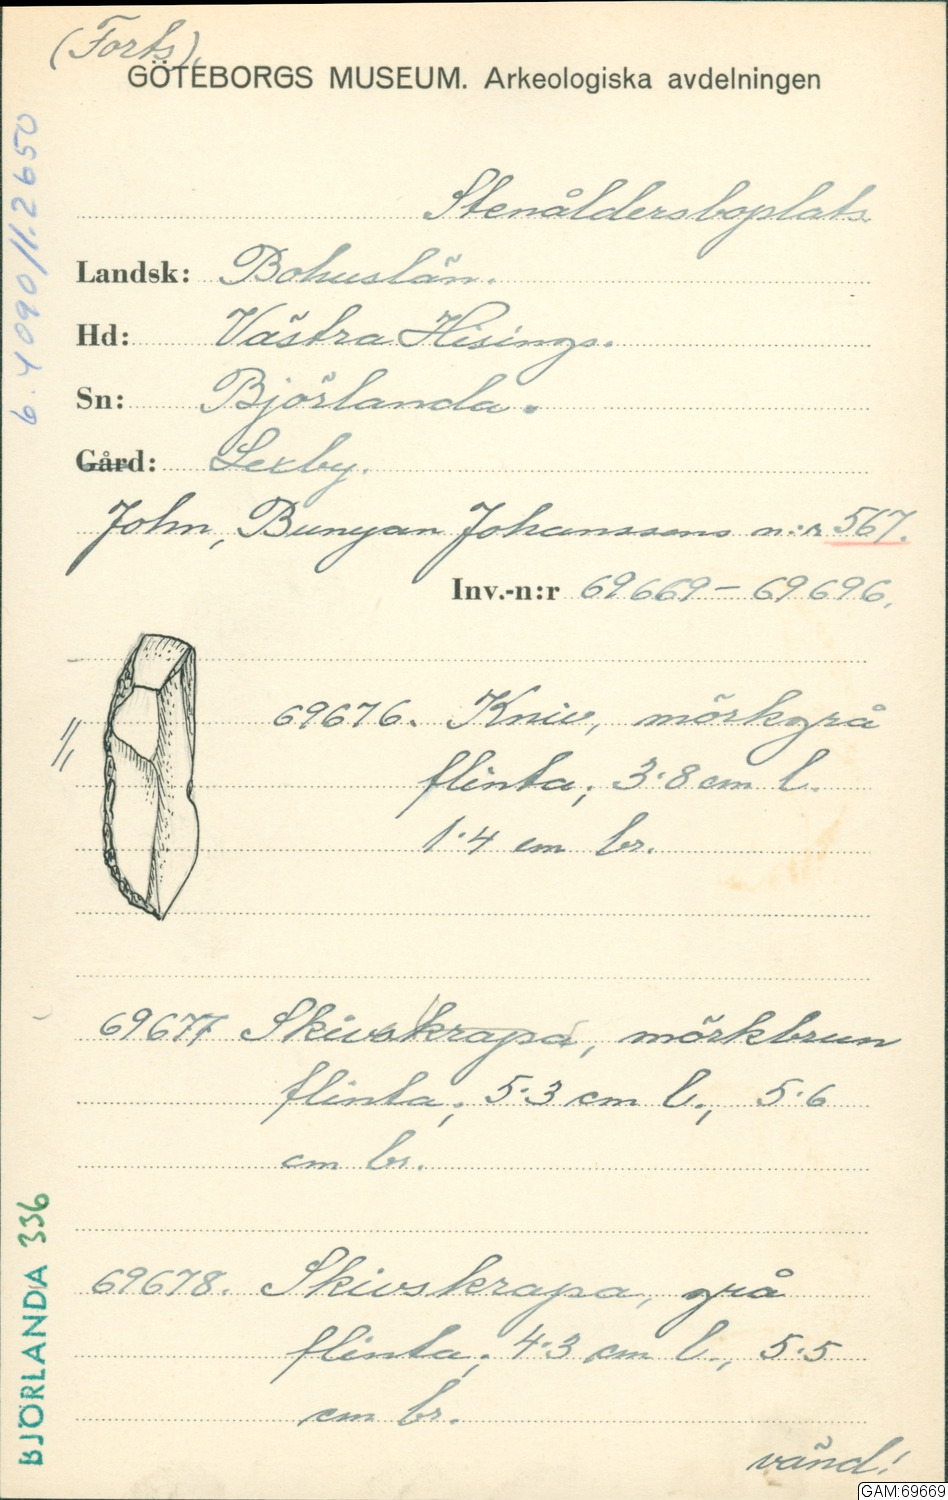 (Forts).
GÖTEBORGS MUSEUM. Arkeologiska avdelningen
6.4090/1.2650
Stenåldersboplats
Landsk: Bohuslän.
Hd: Västra Hisings.
Sn: Björlanda.
Gård: Lexby.
John, Bunyan Johanssons n:r 567.
Inv.-n:r 69669-69696.
69676. Kniv, mörkgrå
flinta; 3·8 cm l.
1·4 cm br.
69677 Skivskrapa, mörkbrun
flinta; 5·3 cm l., 5·6
cm br.
69678. Skivskrapa, grå
flinta; 4·3 cm l., 5·5
cm br.
vänd!
BJÖRLANDA 336
GAM:69669